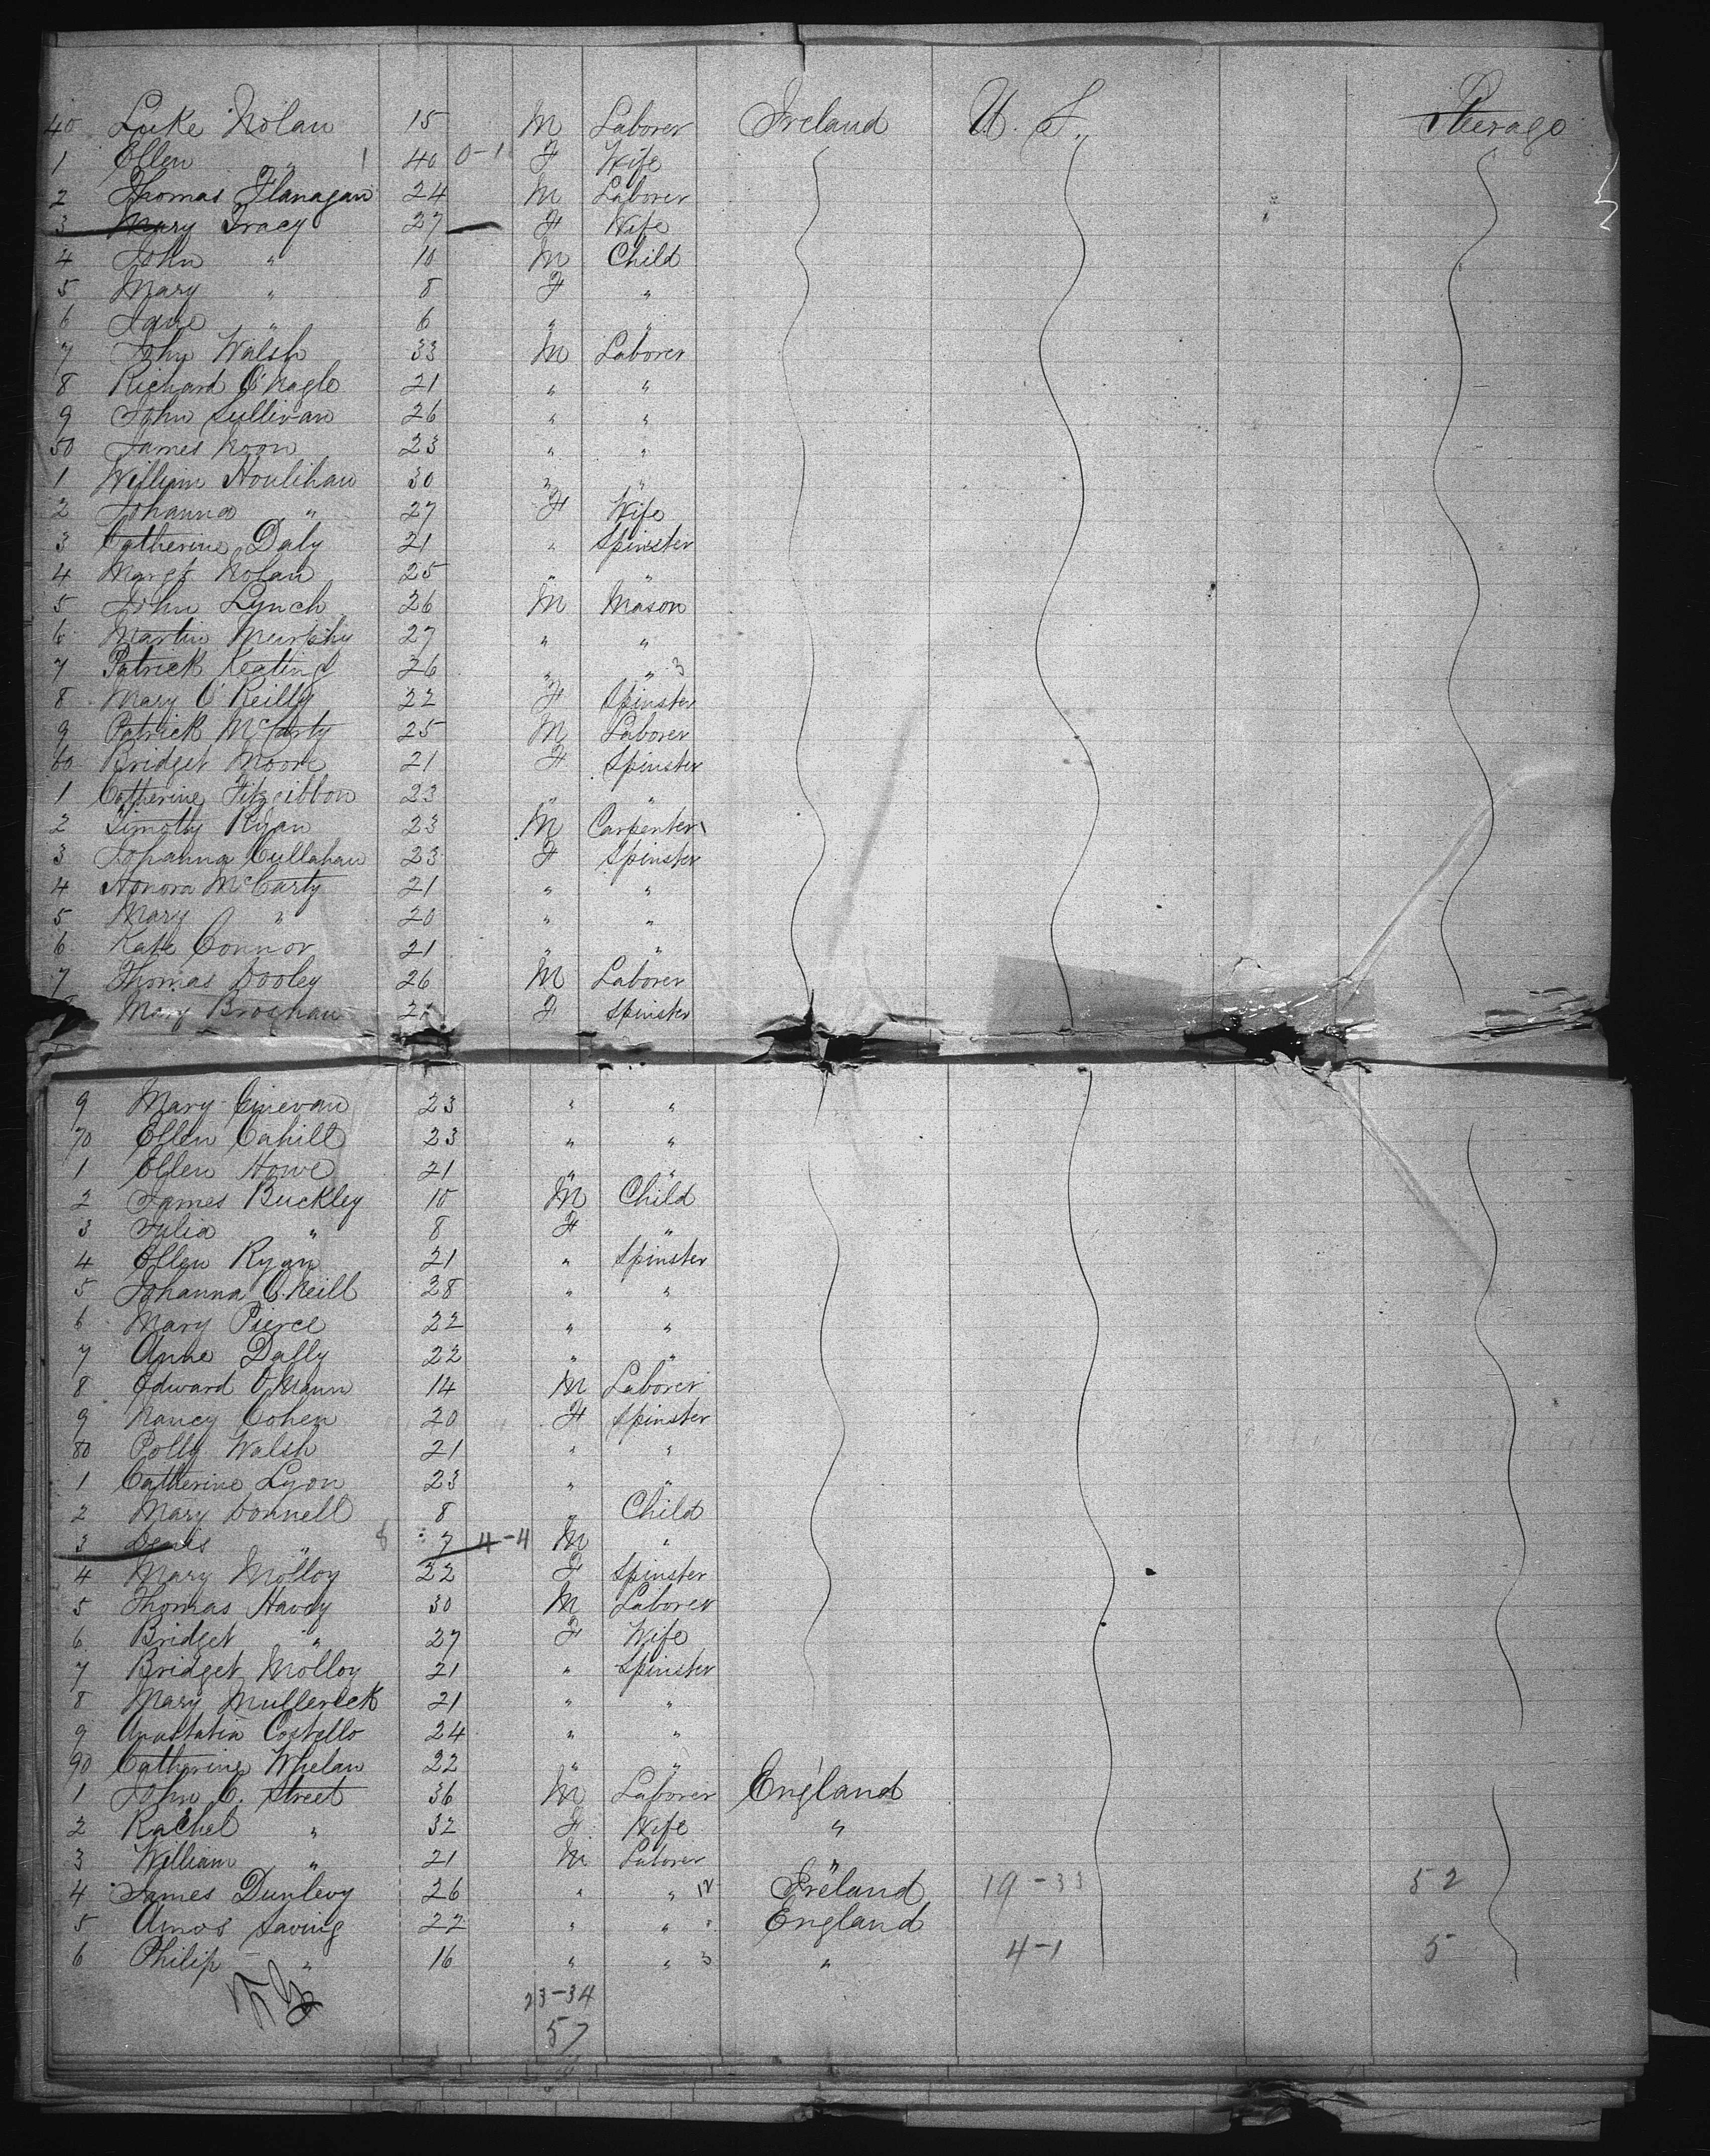 40 Luke Nolan 15 M Laborer Ireland U. S.
1 Ellen " 1 40 0-1 F Wife
2 Thomas Flanagan 24 M Laborer
3 Mary Tracy 27 F Wife
4 John " 10 M Child
5 Mary " 8 F "
6 Jane " 6 " "
7 John Walsh 33 M Laborer
8 Richard O'Nagle 21 " "
9 John Sullivan 26 " "
50 James Noon 23 " "
1 William Houlihan 30 " "
2 Johanna " 27 F Wife
3 Catherine Daly 21 " Spinster
4 Margt Nolan 25 " "
5 John Lynch 26 M Mason
6 Martin Murphy 27 " "
7 Patrick Keating 26 " " 3
8 Mary O'Reilly 22 F Spinster
9 Patrick McCarty 25 M Laborer
60 Bridget Moore 21 F Spinster
1 Catherine Fitzgibbon 23 " "
2 Timothy Ryan 23 M Carpenter
3 Johanna Cullahan 23 F Spinster
4 Honora McCarty 21 " "
5 Mary " 20 " "
6 Kate Connor 21 " "
7 Thomas Dooley 26 M Laborer
Mary Brosnan 21 F Spinster
9 Mary 23 " "
70 Ellen Cahill 23 " "
1 Ellen Howe 21 " "
2 James Buckley 10 M Child
3 Julia " 8 F "
4 Ellen Ryan 21 " Spinster
5 Johanna O'Neill 28 " "
6 Mary Pierce 22 " "
7 Anne Dally 22 " "
8 Edward O'Mann 14 M Laborer
9 Nancy Cohen 20 F Spinster
80 Polly Walsh 21 " "
1 Catherine Lyon 23 " "
2 Mary Donnell 8 " Child
3 Denis " 8 7 4-4 M "
4 Mary Molloy 22 F Spinster
5 Thomas Havey 30 M Laborer
6 Bridget " 27 F Wife
7 Bridget Molloy 21 " Spinster
8 Mary Mullereek 21 " "
9 Anastatia Costello 24 " "
90 Catherine Whelan 22 " "
1 John C. Street 36 M Laborer England
2 Rachel " 32 F Wife "
3 William " 21 M Laborer "
4 James Dunlevy 26 " " 12 Ireland 19-33 52
5 Amos Saving 22 " " England
6 Philip " 16 " " 3 " 4-1 5
23-34
57